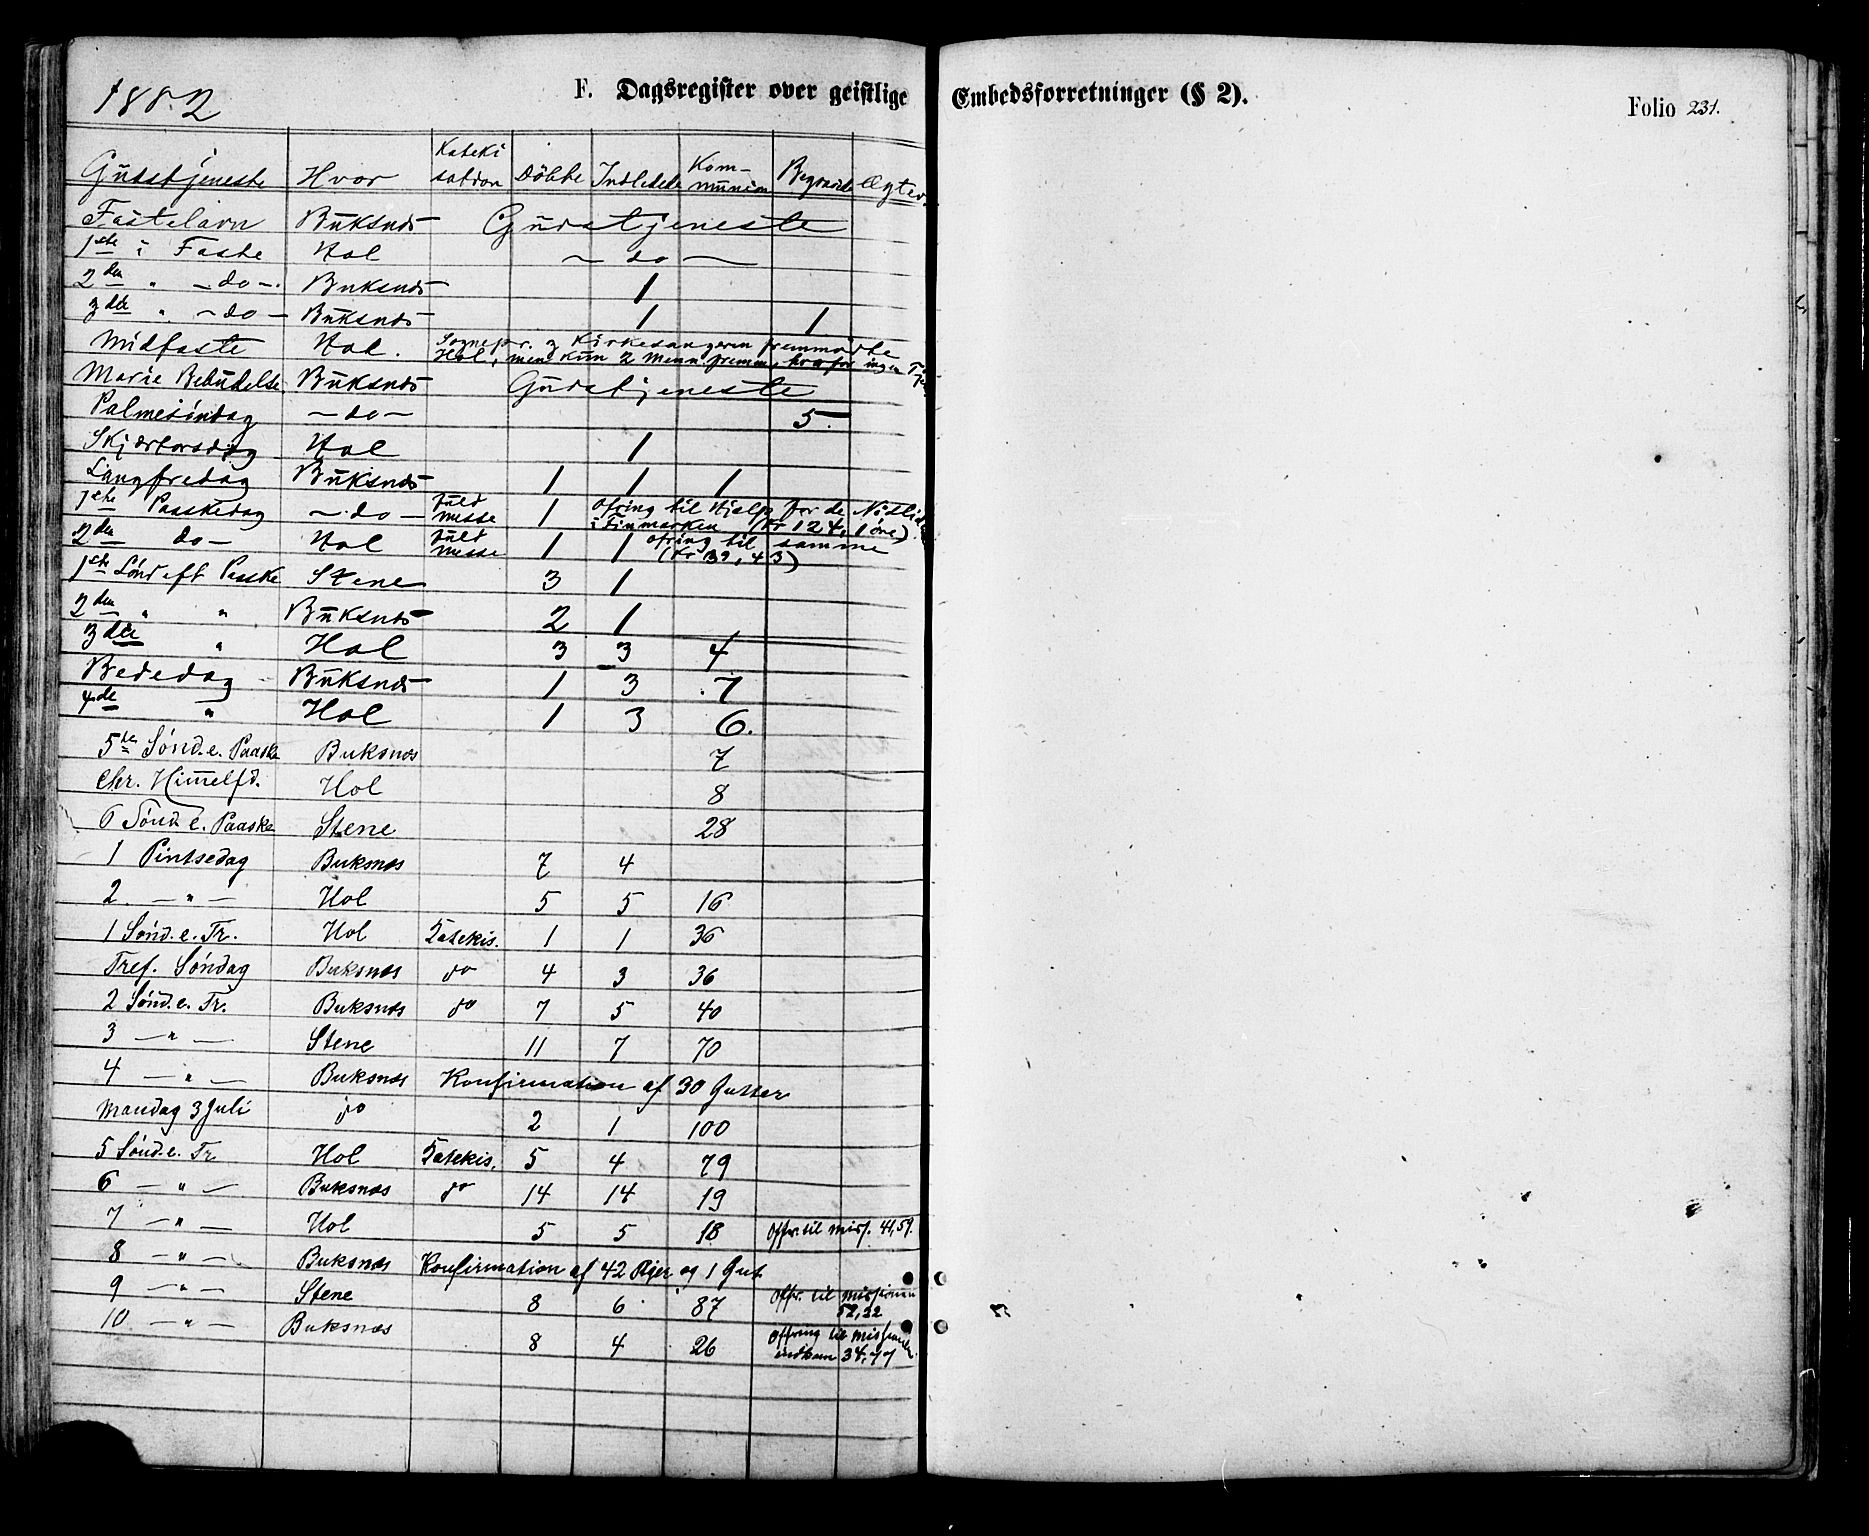 1882
F. Dagsregister over geistlige Embedsforretninger (§ 2).
Folio 231.
Gudstjeneste Hvor Kateki sation Döbte Indledede Kom- munion Begravede Ægtev.
Fastelavn Buksnæs Gudstjeneste
1ste i Faste Hol — do —
2den " — do — Buksnæs 1
3die " — do — Buksnæs 1 1
Midfaste Hol. Sognepr. og Kirkesangeren fremmødte
Hol, men kun 2 Menn fremm., hvorfor ingen
Marie Bebudelse Buksnæs Gudstjeneste
Palmesøndag — do — 5.
Skjærtorsdag Hol 1
Langfredag Buksnæs 1 1 1
1ste Paaskedag — do — Fuld Messe 1 Ofring til Hjælp for de Nødlid
i Finmarken (Kr 124, 1 øre)
2den do — Hol Fuld Messe 1 1 Ofring til samme
(Kr 39, 43)
1ste Sønd eft Paaske Stene 3 1
2den " " Buksnæs 2 1
3die " Hol 3 3 4
Bededag - Buksnæs 1 3 7
4de " Hol 1 3 6.
5te Sønd. e. Paaske Buksnæs 7
Chr. Himmelfd. Hol 8
6 Sønd e. Paaske Stene 28
1 Pintsedag Buksnæs 7 4
2. — " — Hol 5 5 16
1 Sønd. e. Tr. Hol Katekis. 1 1 36
Tref. Søndag Buksnæs do 4 3 36
2 Sønd. e. Tr. Buksnæs do 7 5 40
3 — " — Stene 11 7 70
4 — " — Buksnæs Konfirmation af 30 Gutter
Mandag 3 Juli do 2 1 100
5 Sønd. e. Tr Hol Katekis. 5 4 79
6 — " — Buksnæs do 14 14 19
7 — " — Hol 5 5 18 Offr. til Miss. 41,59.
8 — " — Buksnæs Konfirmation af 42 Piger og 1 Gut
9 — " — Stene 8 6 87 Offr. til Missionen
52,22
10 — " — Buksnæs 8 4 26 Offring til Missionen
indkom 34,77